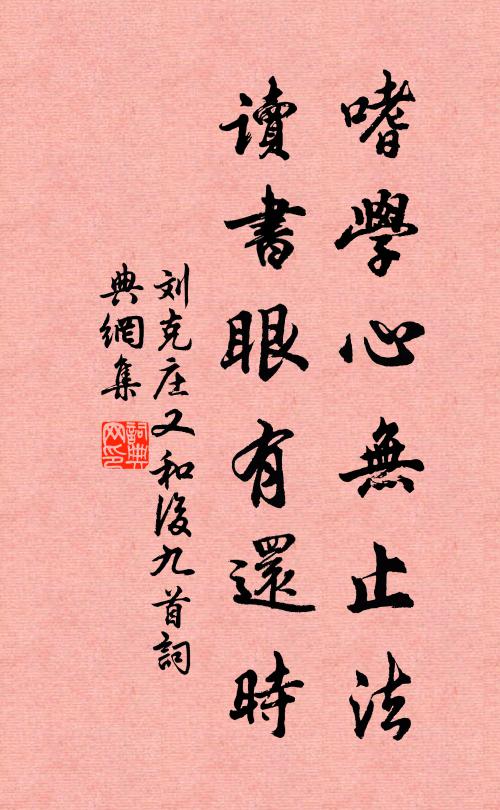 嗜學心無止法
讀書眼有還時
刘克庄又和後九首詞
典網集
詞典
网印